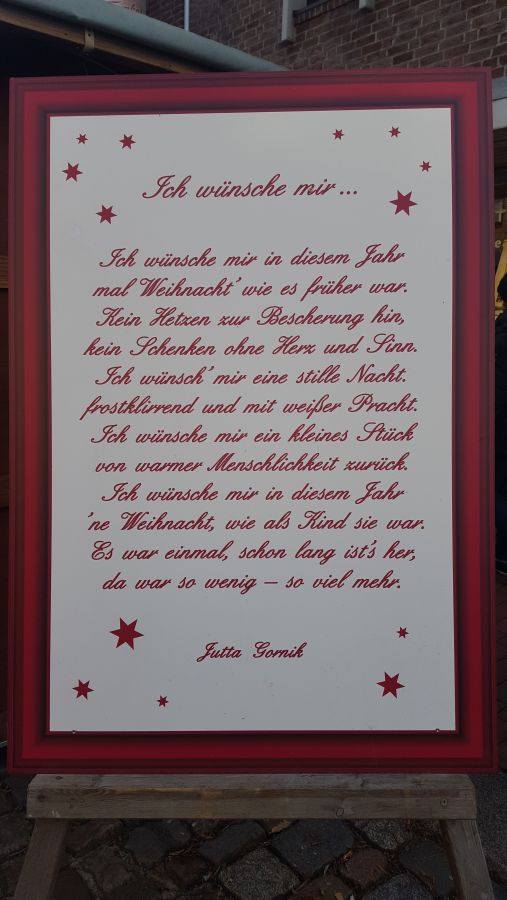 Ich wünsche mir...
Ich wünsche mir in diesem Jahr
mal Weihnacht' wie es früher war.
Kein Hetzen zur Bescherung hin,
kein Schenken ohne Herz und Sinn.
Ich wünsch' mir eine stille Nacht.
frostklirrend und mit weißer Pracht.
Ich wünsche mir ein kleines Stück
von warmer Menschlichkeit zurück.
Ich wünsche mir in diesem Jahr
'ne Weihnacht, wie als Kind sie war.
Es war einmal, schon lang ist's her,
da war so wenig – so viel mehr.
Jutta Gornik